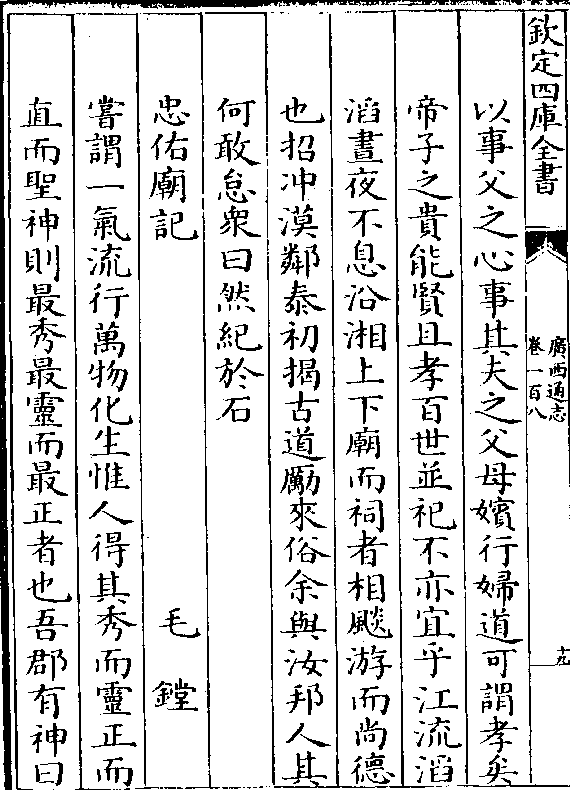 欽定四庫全書
廣西通志
卷一百八
十九
以事父之心事其夫之父母嬪行婦道可謂孝矣
帝子之貴能賢且孝百世並祀不亦宜乎江流滔
滔晝夜不息沿湘上下廟而祠者相颷游而尚德
也招冲漠鄰泰初揭古道勵來俗余與汝邦人其
何敢怠衆曰然紀於石
忠佑廟記 毛鏜
嘗謂一氣流行萬物化生惟人得其秀而靈正而
直而聖神則最秀最靈而最正者也吾郡有神曰